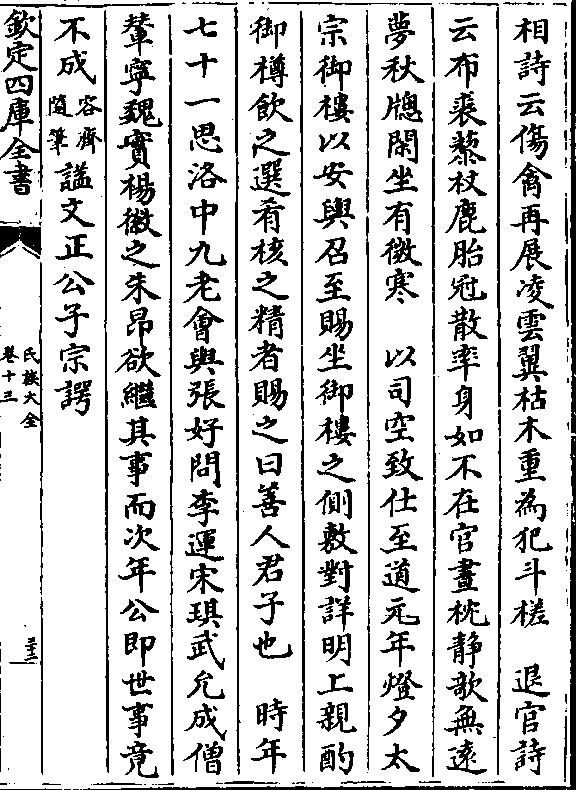 相詩云傷禽再展凌雲翼枯木重為犯斗槎　退官詩
云布裘藜杖鹿胎冠散率身如不在官晝枕靜歌無遠
夢秋牕閑坐有微寒　以司空致仕至道元年燈夕太
宗御樓以安輿召至賜坐御樓之側敷對詳明上親酌
御樽飲之選肴核之精者賜之曰善人君子也　時年
七十一思洛中九老會與張好問李運宋琪武允成僧
賛寧魏實楊徽之朱昂欲繼其事而次年公即世事竟
不成容齋隨筆諡文正公子宗諤
欽定四庫全書
氏族大全
卷十三